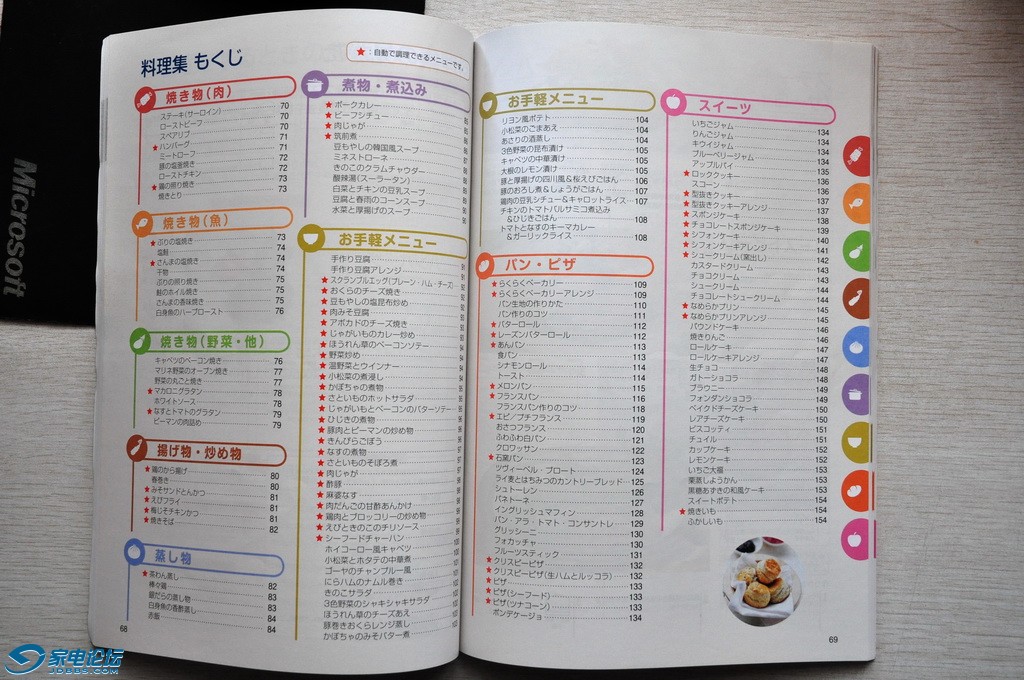 Microsoft
料理集 もくじ
★：自動で調理できるメニューです。
焼き物（肉）
ステーキ（サーロイン） 70
ローストビーフ 70
スペアリブ 70
★ハンバーグ 71
ミートローフ 71
豚の塩釜焼き 72
ローストチキン 72
★鶏の照り焼き 73
焼きとり 73
焼き物（魚）
★ぶりの塩焼き 73
塩鮭 74
★さんまの塩焼き 74
干物 74
ぶりの照り焼き 75
鮭のホイル焼き 75
さんまの香味焼き 75
白身魚のハーブロースト 76
焼き物（野菜・他）
キャベツのベーコン焼き 76
マリネ野菜のオーブン焼き 77
野菜の丸ごと焼き 77
★マカロニグラタン 78
ホワイトソース 78
★なすとトマトのグラタン 79
ピーマンの肉詰め 79
揚げ物・炒め物
★鶏のから揚げ 80
春巻き 80
★みそサンドとんかつ 81
★えびフライ 81
★梅じそチキンかつ 81
★焼きそば 82
蒸し物
★茶わん蒸し 82
棒々鶏 83
銀だらの蒸し物 83
白身魚の香酢蒸し 84
赤飯 84
68
煮物・煮込み
★ポークカレー 85
★ビーフシチュー
★肉じゃが
★筑前煮
豆もやしの韓国風スープ
ミネストローネ
きのこのクラムチャウダー
酸辣湯（スーラータン）
白菜とチキンの豆乳スープ
豆腐と春雨のコーンスープ
水菜と厚揚げのスープ
お手軽メニュー
手作り豆腐
手作り豆腐アレンジ
★スクランブルエッグ（プレーン・ハム・チーズ）
★おくらのチーズ焼き
★豆もやしの塩昆布炒め
★肉みそ豆腐
★アボカドのチーズ焼き
★じゃがいものカレー炒め
★ほうれん草のベーコンソテー
★野菜炒め
★温野菜とウインナー
★小松菜の煮浸し
★かぼちゃの煮物
★さといものホットサラダ
★じゃがいもとベーコンのバターソテー
★ひじきの煮物
★豚肉とピーマンの炒め物
★きんぴらごぼう
★なすの煮物
★さといものそぼろ煮
★肉じゃが
★酢豚
★麻婆なす
★肉だんごの甘酢あんかけ
★鶏肉とブロッコリーの炒め物
★えびときのこのチリソース
★シーフードチャーハン
ホイコーロー風キャベツ
小松菜とホタテの中華煮
ゴーヤのチャンプルー風
にらハムのナムル巻き
きのこサラダ
3色野菜のシャキシャキサラダ
ほうれん草のチーズあえ
豚巻きおくらレンジ蒸し
かぼちゃのみそバター煮
お手軽メニュー
リヨン風ポテト 104
小松菜のごまあえ 104
あさりの酒蒸し 104
3色野菜の昆布漬け 105
キャベツの中華漬け 105
大根のレモン漬け 105
豚と厚揚げの四川風＆桜えびごはん 106
豚のおろし煮＆しょうがごはん 107
鶏肉の豆乳シチュー＆キャロットライス 107
チキンのトマトバルサミコ煮込み
＆ひじきごはん 108
トマトとなすのキーマカレー
＆ガーリックライス 108
パン・ピザ
★らくらくベーカリー 109
★らくらくベーカリーアレンジ 109
パン生地の作りかた 110
パン作りのコツ 111
★バターロール 112
★レーズンバターロール 112
★あんパン 113
食パン 113
シナモンロール 114
トースト 114
★メロンパン 115
★フランスパン 116
フランスパン作りのコツ 118
★エピ／プチフランス 119
おさつフランス 120
ふわふわ白パン 121
クロワッサン 122
★石窯パン 123
ツヴィーベル・ブロート 124
ライ麦とはちみつのカントリーブレッド 125
シュトーレン 126
パネトーネ 127
イングリッシュマフィン 128
パン・アラ・トマト・コンサントレ 129
グリッシーニ 130
フォカッチャ 130
フルーツスティック 131
★クリスピーピザ 132
★クリスピーピザ（生ハムとルッコラ） 132
★ピザ 133
★ピザ（シーフード） 133
★ピザ（ツナコーン） 133
ポンデケージョ 134
スイーツ
いちごジャム 134
りんごジャム 134
キウイジャム 134
ブルーベリージャム 134
アップルパイ 135
★ロッククッキー 135
スコーン 136
★型抜きクッキー 136
★型抜きクッキーアレンジ 137
★スポンジケーキ 138
★チョコレートスポンジケーキ 139
★シフォンケーキ 140
★シフォンケーキアレンジ 141
★シュークリーム（窯出し） 142
カスタードクリーム 143
チョコクリーム 143
シュークリーム 144
チョコレートシュークリーム 144
★なめらかプリン 145
★なめらかプリンアレンジ 145
パウンドケーキ 146
焼きりんご 146
ロールケーキ 147
ロールケーキアレンジ 147
生チョコ 148
ガトーショコラ 148
ブラウニー 149
フォンダンショコラ 149
ベイクドチーズケーキ 150
レアチーズケーキ 150
ビスコッティ 151
チュイル 151
カップケーキ 152
レモンケーキ 152
いちご大福 153
栗蒸しようかん 153
黒糖あずきの和風ケーキ 153
スイートポテト 154
★焼きいも 154
ふかしいも 154
69
家电论坛
JDBBS.COM